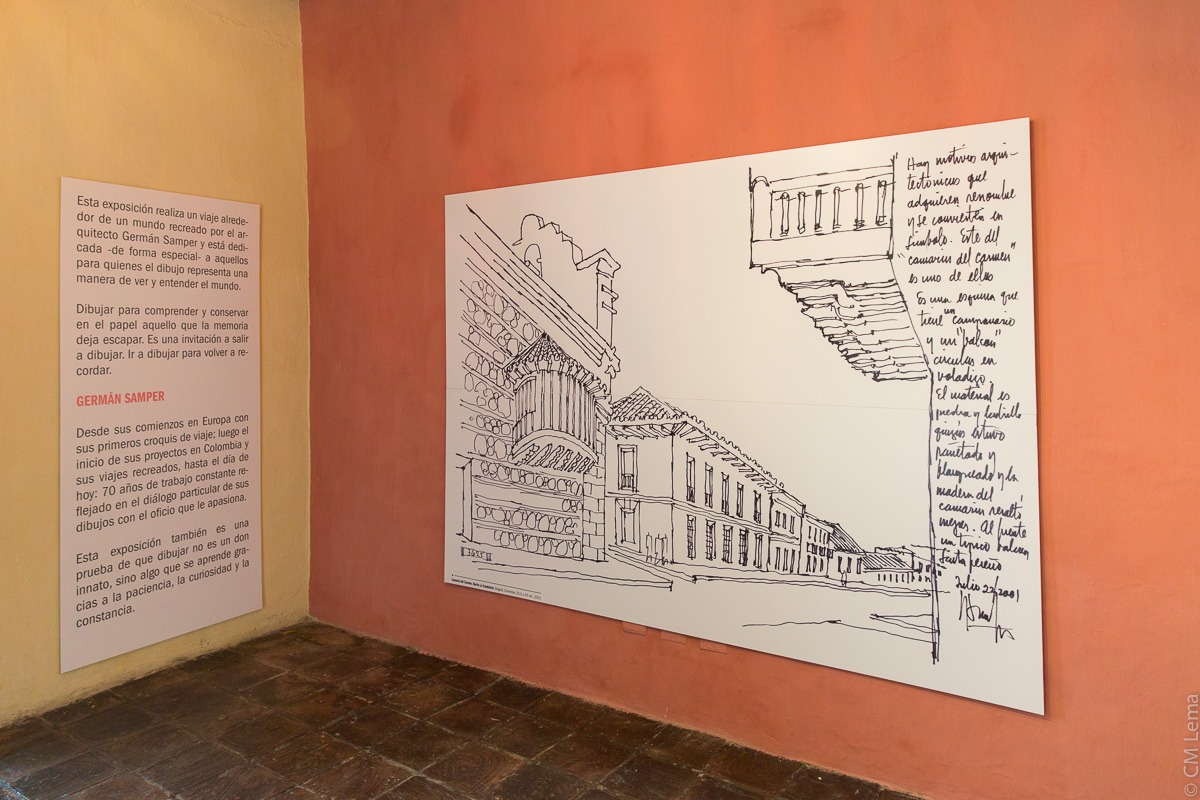 Esta exposición realiza un viaje alrede-
dor de un mundo recreado por el ar-
quitecto Germán Samper y está dedi-
cada -de forma especial- a aquellos
para quienes el dibujo representa una
manera de ver y entender el mundo.
Dibujar para comprender y conservar
en el papel aquello que la memoria
deja escapar. Es una invitación a salir
a dibujar. Ir a dibujar para volver a re-
cordar.
GERMÁN SAMPER
Desde sus comienzos en Europa con
sus primeros croquis de viaje; luego el
inicio de sus proyectos en Colombia y
sus viajes recreados, hasta el día de
hoy: 70 años de trabajo constante re-
flejado en el diálogo particular de sus
dibujos con el oficio que le apasiona.
Esta exposición también es una
prueba de que dibujar no es un don
innato, sino algo que se aprende gra-
cias a la paciencia, la curiosidad y la
constancia.
Hay motivos arqui-
tectónicos que
adquieren renombre
y se convierten en
símbolo. Este del
"camarín del carmen"
es uno de ellos
Es una esquina que
tiene un campanario
y un "balcón"
circular en
voladizo.
El material es
piedra y ladrillo
quizás estuvo
pañetado y
blanqueado y la
madera del
camarín resaltó
mejor. Al frente
un típico balcón
santafereño
Julio 22/2001
3655
© CM Lema